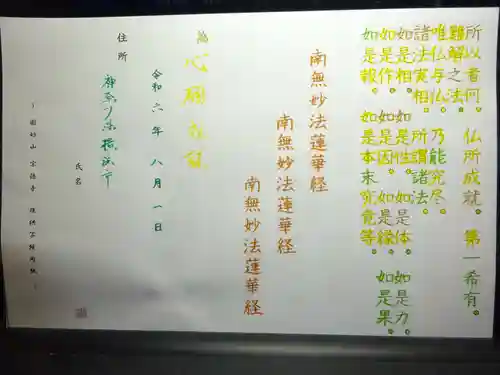 所以者何。仏所成就。第一希有。
難解之法。
唯仏与仏。乃能究尽。
諸法実相。所謂諸法。
如是相。如是性。如是体。如是力。
如是作。如是因。如是縁。如是果。
如是報。如是本末究竟等。
南無妙法蓮華経
南無妙法蓮華経
南無妙法蓮華経
為
心願
令和六年八月一日
住所
神奈川県横浜市
氏名